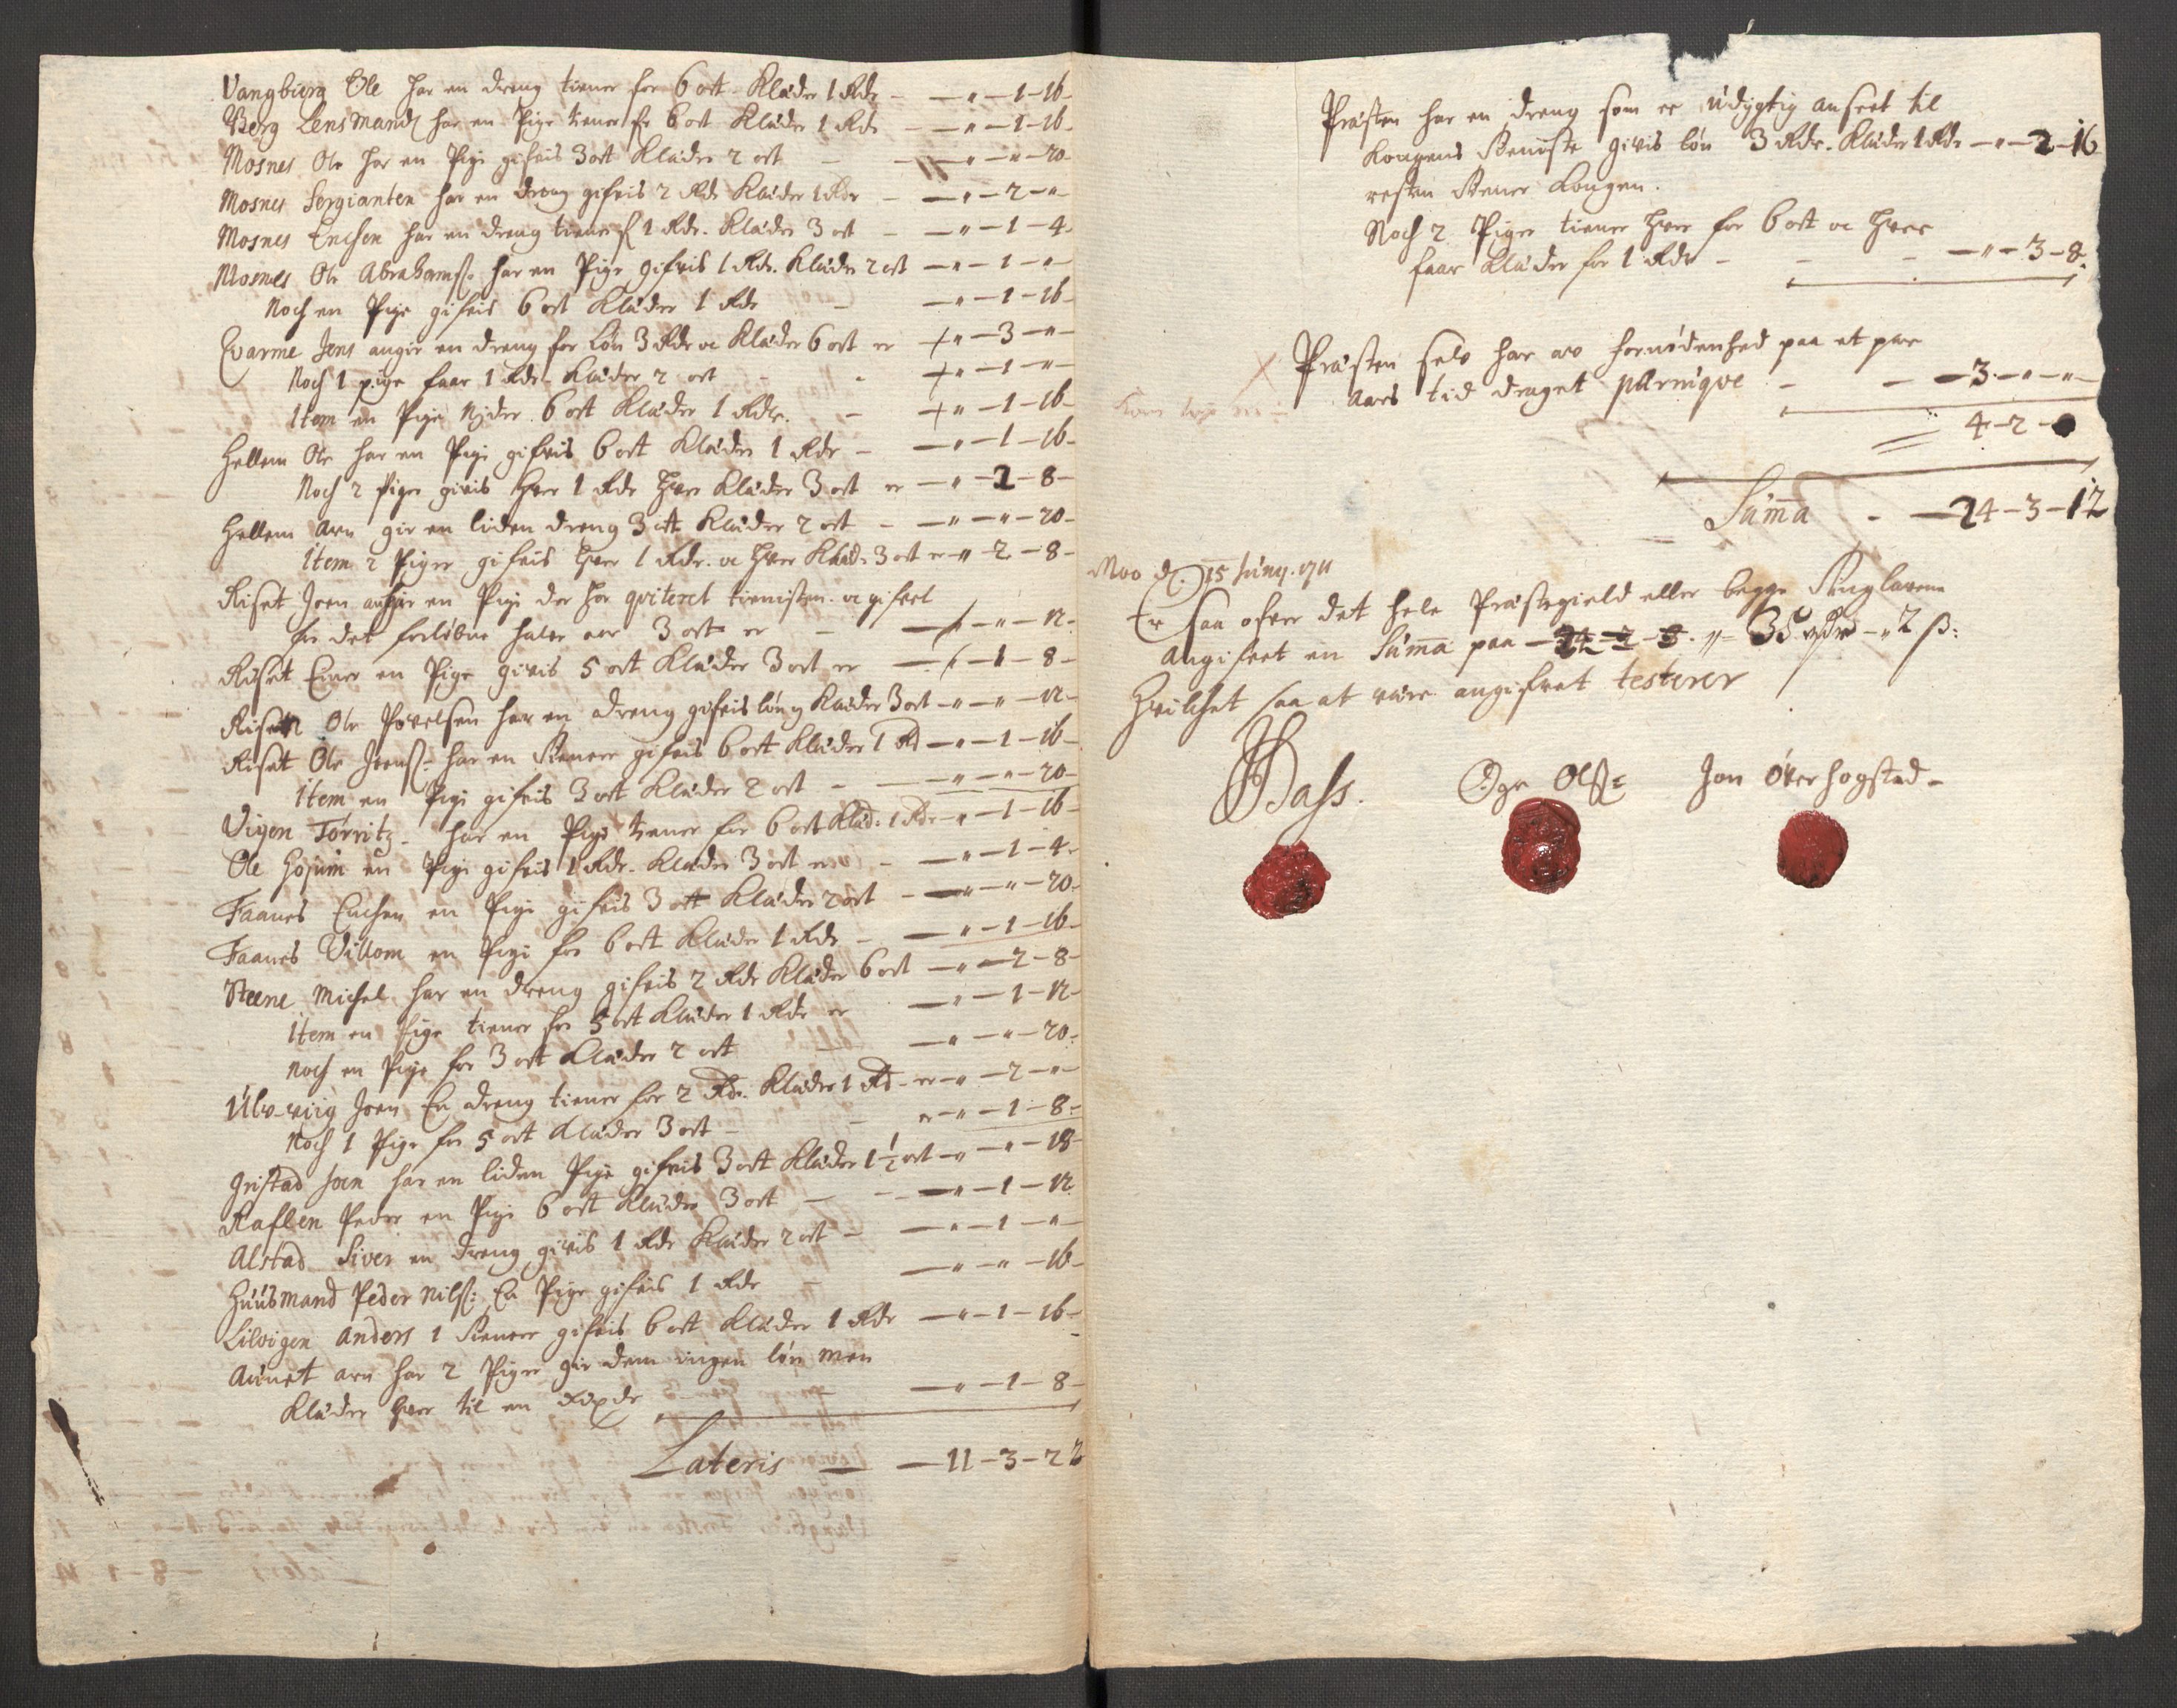 Vangbierg Ole har en dreng tiener for 6 ort Klæder 1 Rdr – „ – 1 – 16
Berg Lensmand har en Pige tiener for 6 ort Klæder 1 Rdr – „ – 1 – 16
Mosnes Ole har en Pige gifvis 3 ort Klæder 2 ort – „ – „ – 20
Mosnes Sergianten har en dreng gifvis 2 Rdr Klæder 1 Rdr – „ – 2 – „
Mosnes Enchen har en dreng tiener f 1 Rdr. Klæder 3 ort – „ – 1 – 4
Mosnes Ole Abrahams: har en Pige gifvis 1 Rdr. Klæder 2 ort – „ – 1 – „
Noch en Pige gifvis 6 ort Klæder 1 Rdr – „ – 1 – 16
Evarme Jens angir en dreng for Løn 3 Rdr oc Klæder 6 ort er „ – 3 – „
Noch 1 pige faar 1 Rdr – Klæder 2 ort „ – 1 – „
Item en Pige Nyder 6 ort Klæder 1 Rdr. – „ – 1 – 16
Hellem Ole har en Pige gifvis 6 ort Klæder 1 Rdr – „ – 1 – 16
Noch 2 Piger givis hver 1 Rdr hver Klæder 3 ort er – „ – 2 – 8
Hellem Arn gir en liden dreng 3 ort Klæder 2 ort – „ – „ – 20
Item 2 Piger gifvis hver 1 Rdr. oc hver Klæd: 3 ort er „ 2 – 8
Riset Joen angir en Pige der har qviteret tienisten oc gifvet
for det forløbne halve aar 3 ort er – „ – 12
Riset Einer en Pige givis 5 ort Klæder 3 ort er – 1 – 8
Riset Ole Povelsen har en dreng gifvis løn Klæder 3 ort – „ – „ – 12
Riset Ole Joens: har en Tienere gifvis 6 ort Klæder 1 Rd – „ – 1 – 16
Item en Pige gifvis 3 ort Klæder 2 ort – „ – „ – 20
Vigen Tørritz – har en Pige tiener for 6 ort Klæd: 1 Rdr – „ – 1 – 16
Ole Hojum en Pige gifvis 1 Rdr. Klæder 3 ort er – „ – 1 – 4
Faanes Enchen en Pige gifvis 3 ort Klæder 2 ort – „ – „ – 20
Faanes Villom en Pige for 6 ort Klæder 1 Rdr – „ – 1 – 16
Steene Michel har en dreng gifvis 2 Rdr Klæder 6 ort – „ – 2 – 8
Item en Pige tiener for 5 ort Klæder 1 Rdr er – „ – 1 – 12
Noch en Pige for 3 ort Klæder 2 ort – „ – „ – 20
Ulv-viig Joen En dreng tiener for 2 Rdr. Klæder 1 Rd – er „ – 2 – „
Noch 1 Pige for 5 ort Klæder 3 ort – er – „ – 1 – 8
Gristad Joen har en liden Pige gifvis 3 ort Klæder 1 1/2 ort – „ – „ – 18
Raflen Peder en Pige 6 ort Klæder 3 ort – „ – 1 – 12
Alstad Siver en dreng givis 1 Rdr Klæder 2 ort – „ – 1 – „
Huusmand Peder Nils: En Pige gifvis 1 Rdr – „ – „ – 16
Lilvigen Anders 1 Tienere gifvis 6 ort Klæder 1 Rdr – „ – 1 – 16
Aunet Arn har 2 Piger gir dem ingen løn men
Klæder hver til en Rixdr – „ – 1 – 8
Lateris – 11 – 3 – 22
Præsten har en dreng som er udygtig anseet til
Kongens Tieniste givis løn 3 Rdr. Klæder 1 Rdr – „ – 2 – 16
resten Tiener Kongen.
Noch 2 Piger tiener hver for 6 ort oc hver
faar Klæder for 1 Rdr – „ – 3 – 8
Præsten selv har av fornødenhed paa et par
Aars tid draget pArrúqve – 3 – „ – „
4 – 2 –
Summa – 24 – 3 – 12
Moo d. 15 Juny. 1711
Er saa ofver det hele Præstegield eller begge Tinglavene
Angifvet en Summa paa – 35 rdr – „ 2 ß:
Hvilchet saa at være angifvet testerer
Bass. Oge Ols: Jon Øverhogstad –